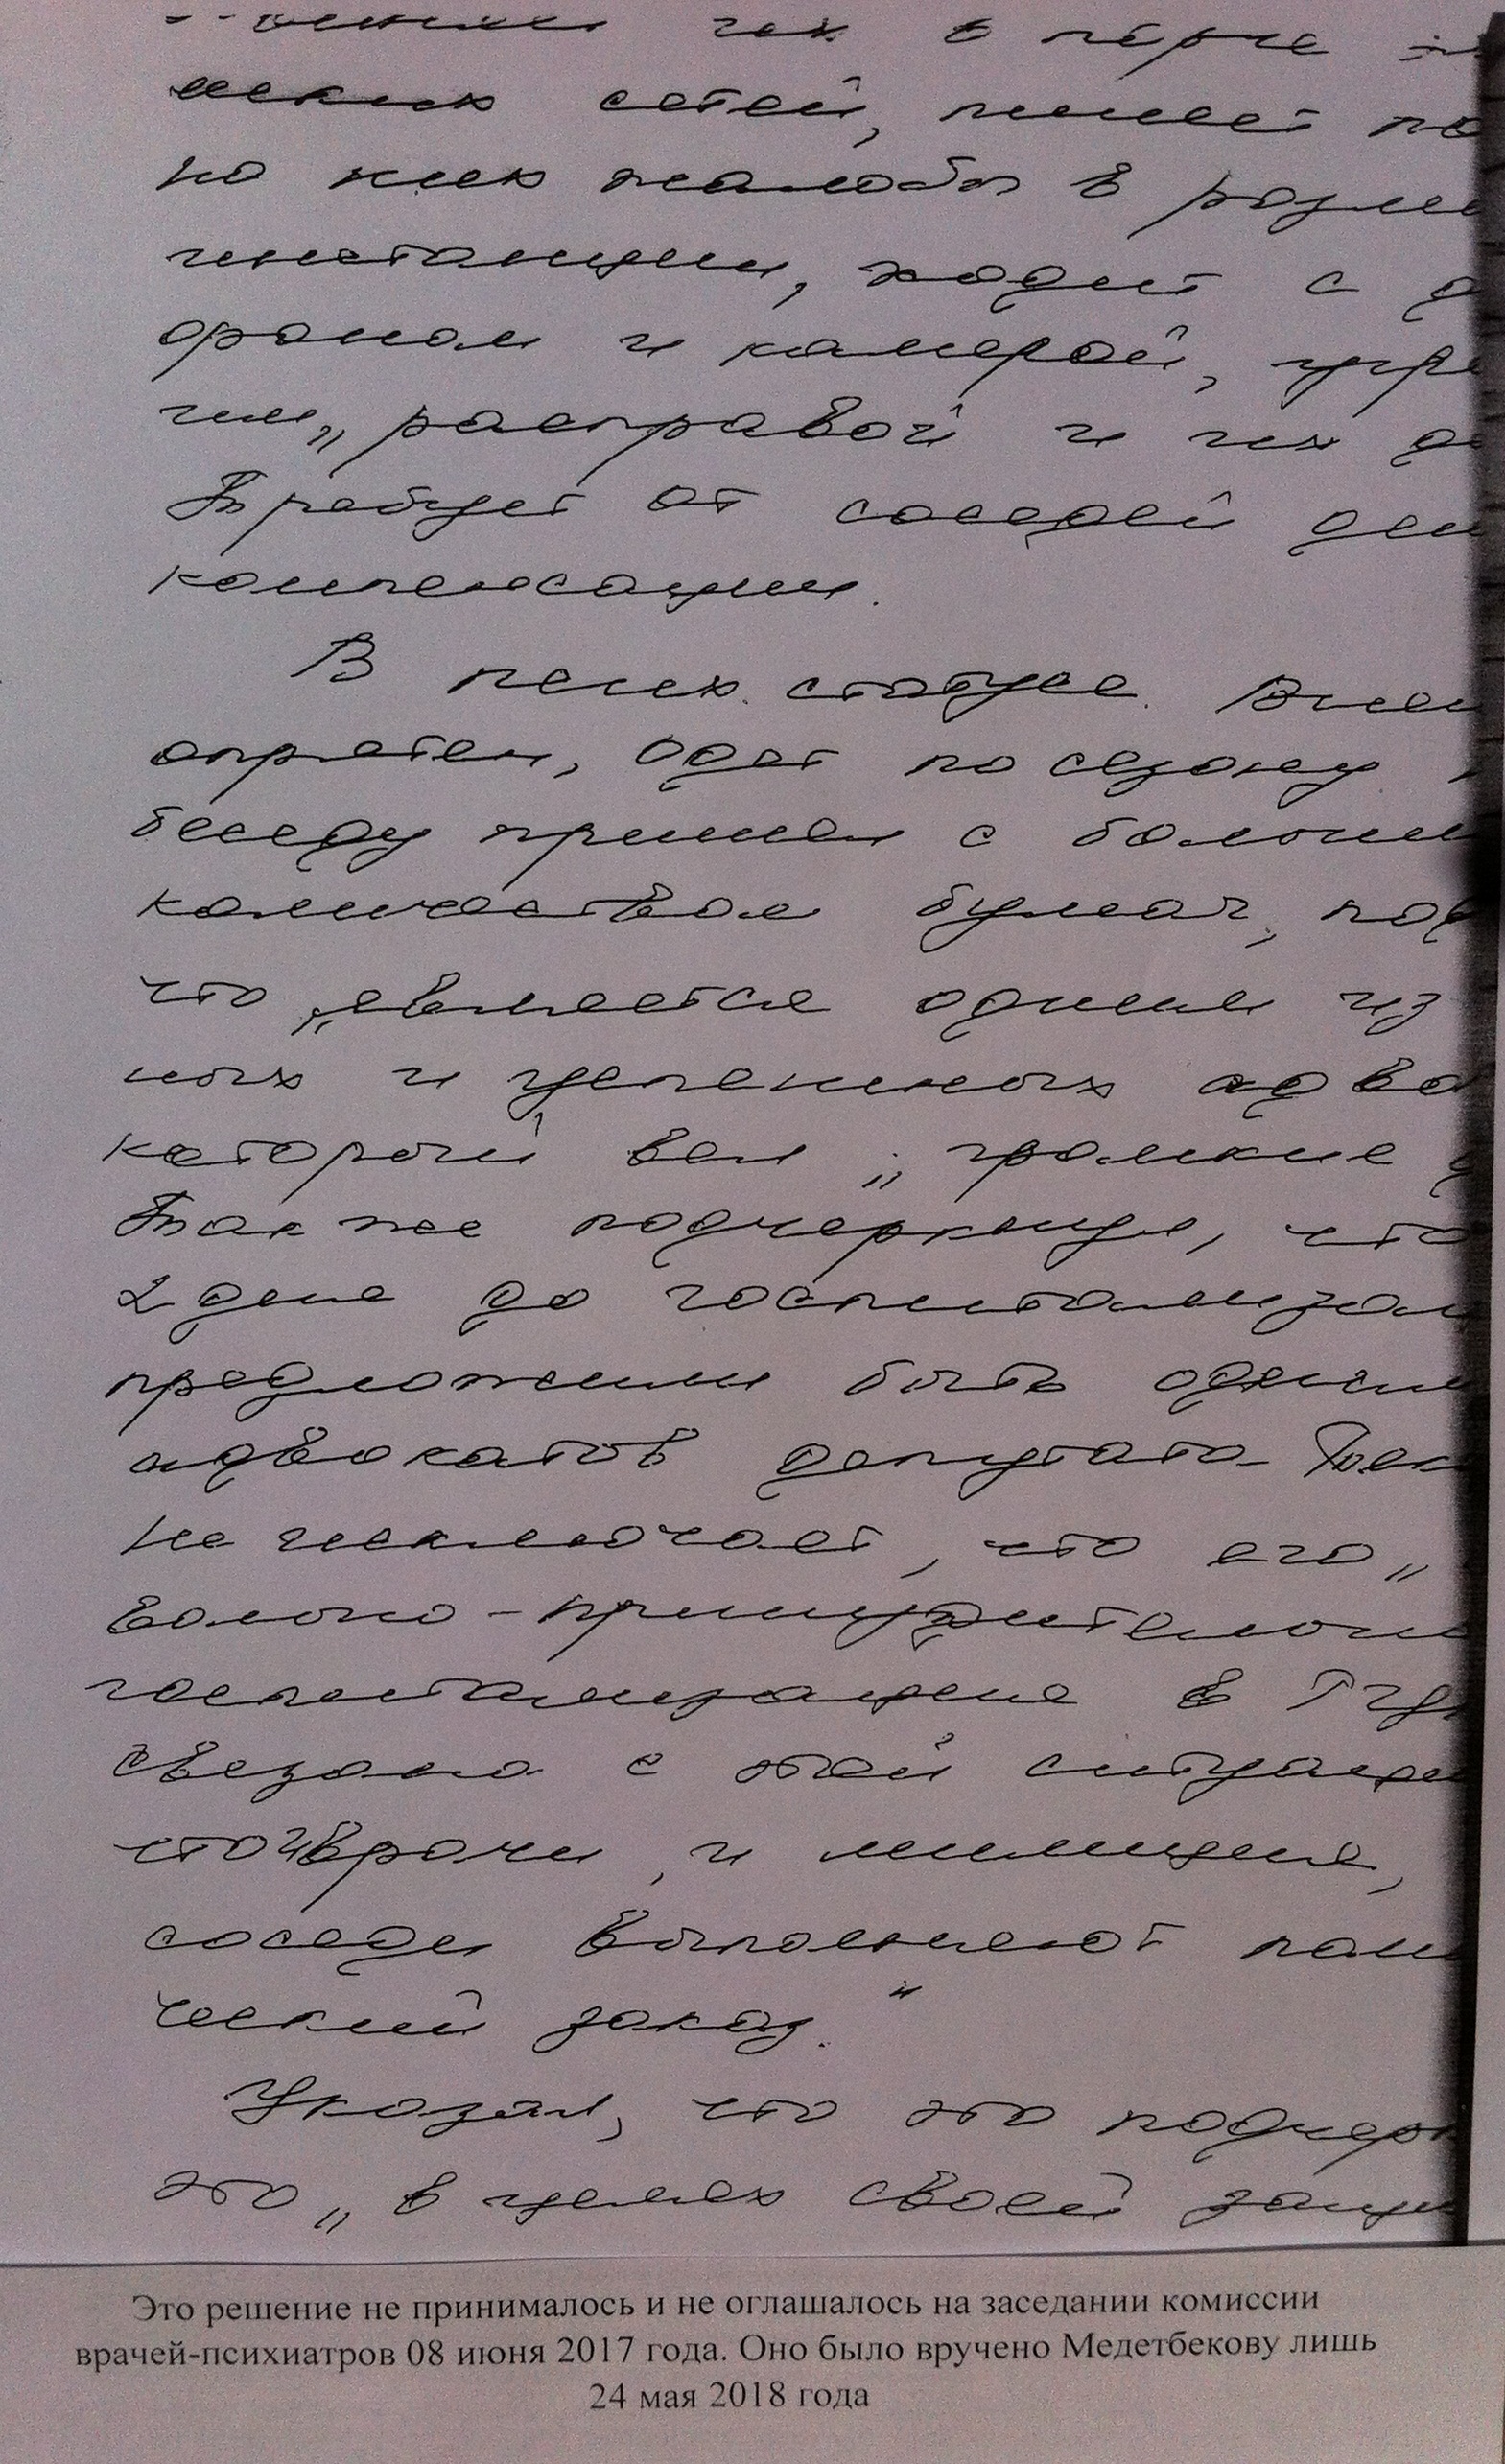 так в
ческих сетей, пишет по
на них жалобы в разли
инстанции, ходит с д
фоном и камерой, угро
им „расправой и их де
Требует от соседей ден
компенсации.
В псих. статусе. Внеш
опрятен, одет по сезону
беседу пришел с большим
количеством бумаг, под
что „является одним из
ных и успешных адво
который вел „громкие
Так же подчеркнул, что
2 дня до госпитализац
предложили быть одним
адвокатов депутата Тек
Не исключает, что его „
вольно-принудительно
госпитализация в
связана с этой ситуаци
что и врачи, и милиция,
соседи выполняют поли
ческий заказ."
Указал, что это подчерк
это „в целях своей защи
Это решение не принималось и не оглашалось на заседании комиссии
врачей-психиатров 08 июня 2017 года. Оно было вручено Медетбекову лишь
24 мая 2018 года